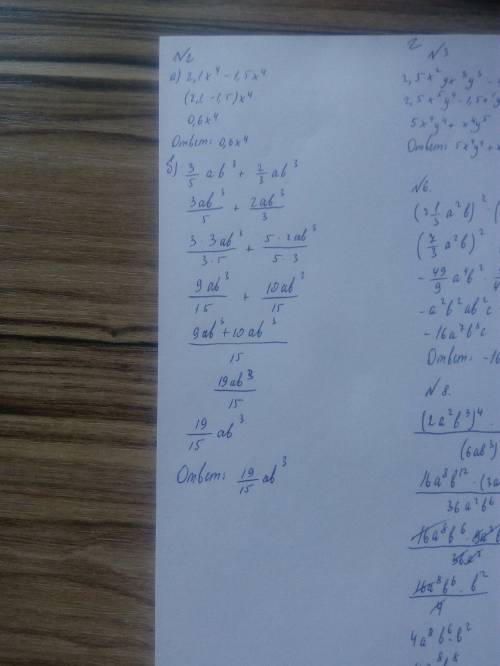 №2
а) 2,1x⁴ - 1,5x⁴
(2,1 - 1,5)x⁴
0,6x⁴
Ответ: 0,6x⁴
б) 3/5 ab³ + 2/3 ab³
3ab³/5 + 2ab³/3
3·3ab³/3·5 + 5·2ab³/5·3
9ab³/15 + 10ab³/15
9ab³+10ab³/15
19ab³/15
19/15 ab³
Ответ: 19/15 ab³
№3
5x⁴y⁴ + x⁴y⁵
Ответ: 5x⁴y⁴ + x
№6.
(2 1/3 a²b)² · (
(7/3 a²b)²
- 49/9 a⁴b² ·
-a²b²ab²c
-16a⁷b³c
Ответ: -16
№8.
(2a²b³)⁴ ·
(6ab³)
16a⁸b¹² · (3a
36a²b⁶
16a⁸b⁶ · b²
4
4a⁸b⁶·b²